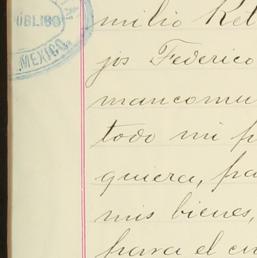 ÚBLICO
MEXICO
milio Rel
jos Federico
mancomu
todo mi p
quiera, pa
mis bienes,
para el cu